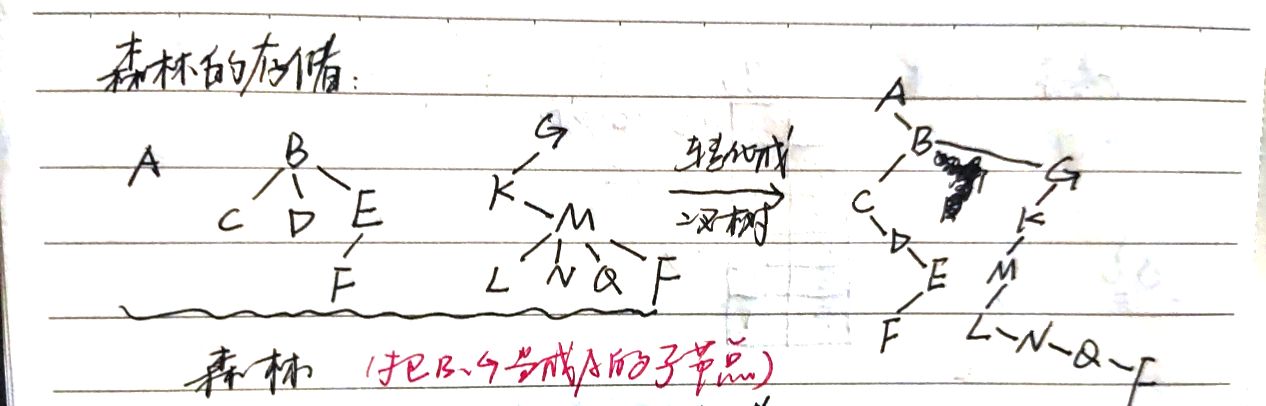 森林的存储:
A B G 转化成 A
C D E K M 二叉树 B G
F L N Q F C K
D E M
F L N Q F
森林 (把B、G当成A的子节点)